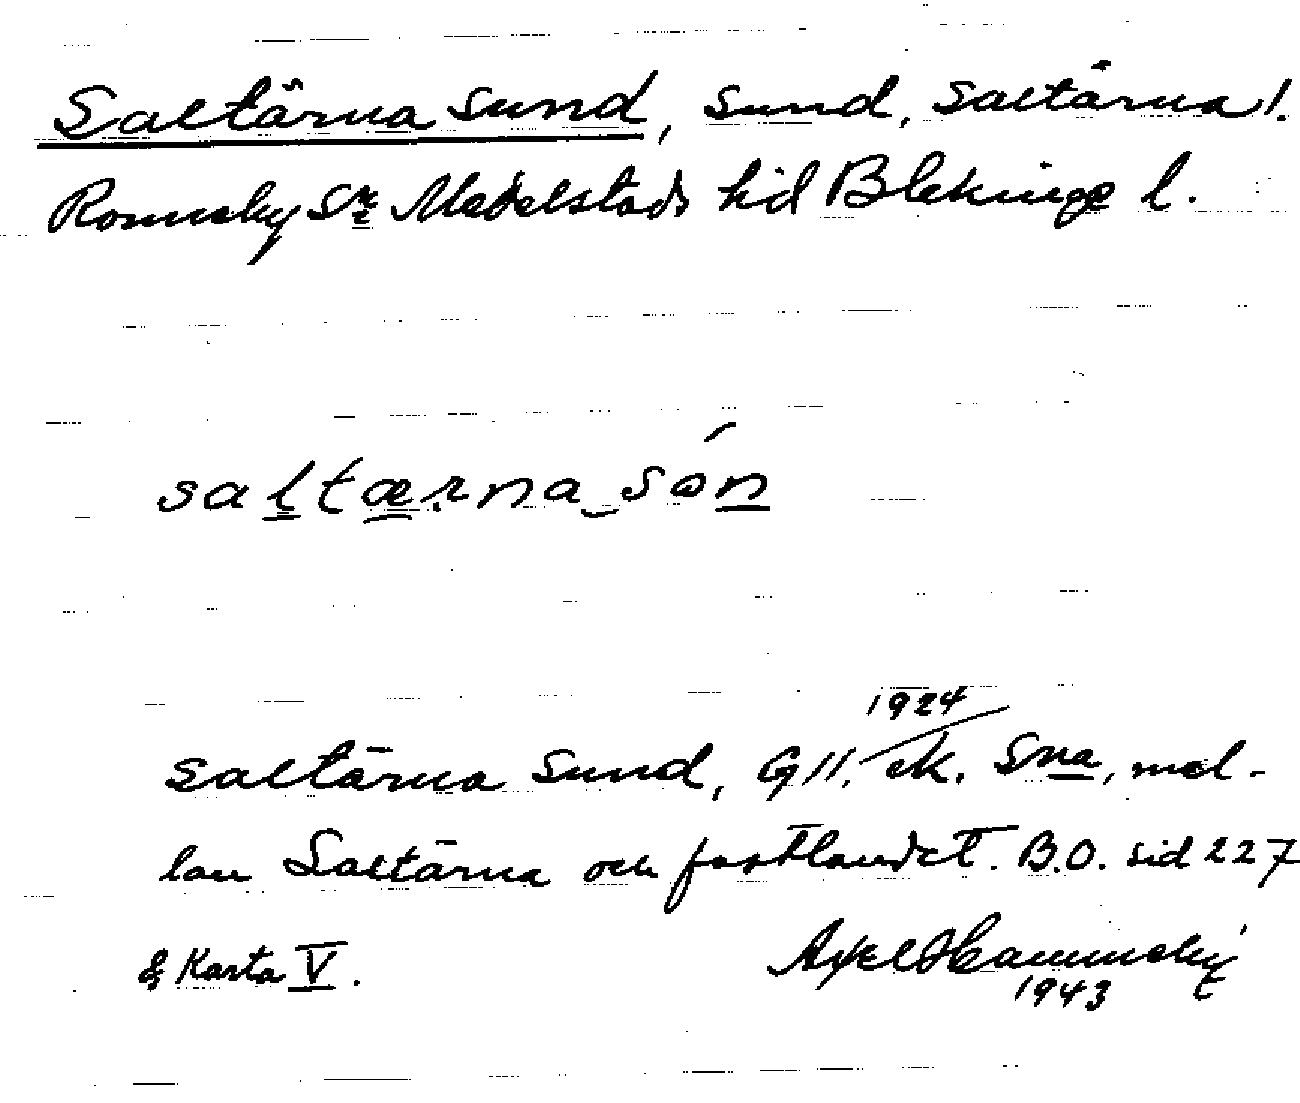 Saltärna sund, sund, Saltärna l.
Ronneby Sn Medelstads hd Blekinge l.
saltærna són
1924
Saltärna sund, G11. ek. Sna, mel-
lan Saltärna och fastlandet. B.O. sid 227
& Karta V.
Axel Hammeby
1943